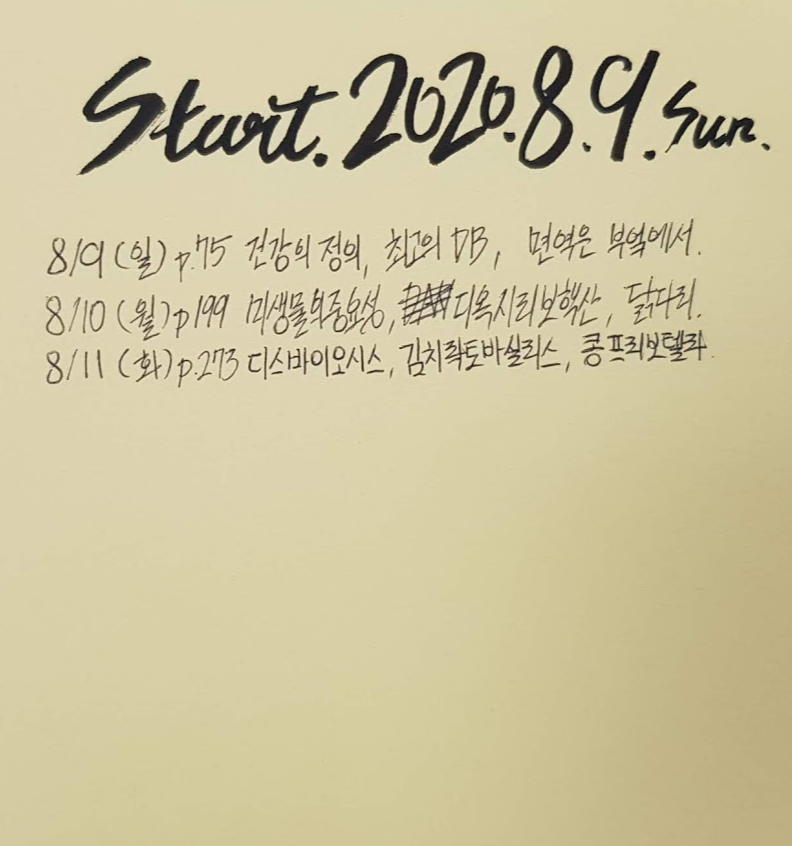 Start. 2020. 8. 9. Sun.
8/9 (일) p.75 건강의 정의, 최고의 DB, 면역은 부엌에서.
8/10 (월) p199 미생물의중요성, 디옥시리보핵산, 닭다리.
8/11 (화) p.273 디스바이오시스, 김치락토바실리스, 콩프리보텔라.